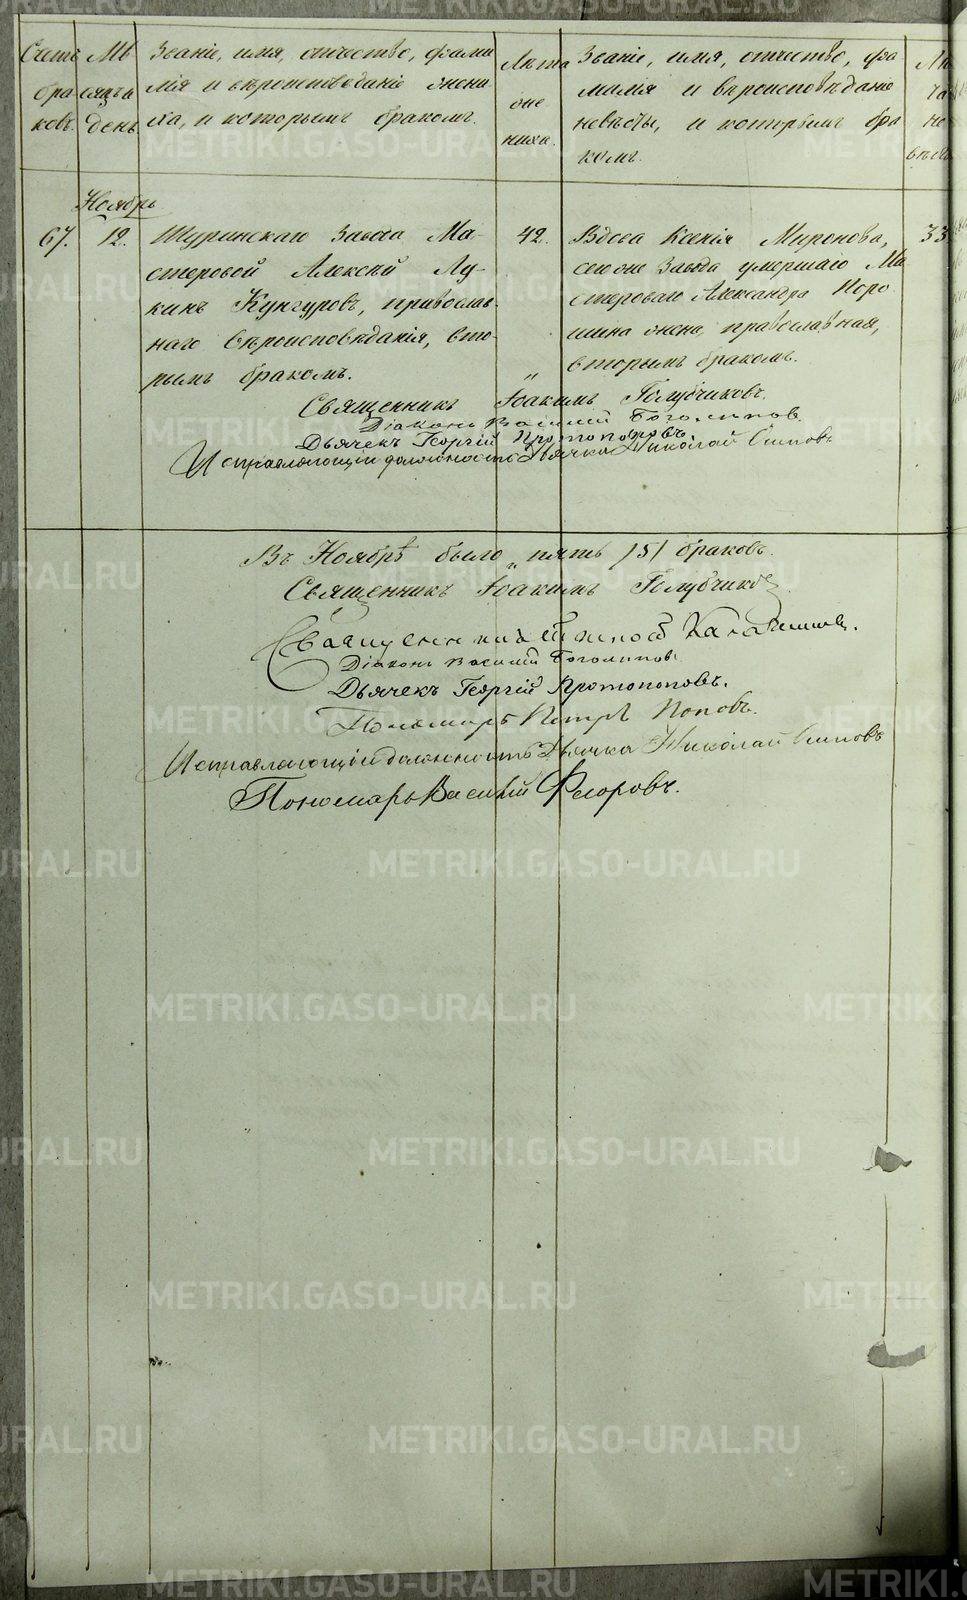 Счетъ браковъ.
Мѣсяцъ и день
Званіе, имя, отчество, фами
лія и вѣроисповѣданіе жени
ха, и которымъ бракомъ.
Лѣта
жениха.
Званіе, имя, отчество, фа
милія и вѣроисповѣданіе
невѣсты, и которымъ бра
комъ.
Ноябрь
67.
12.
Шуринскаго Завода Ма-
стеровой Алексѣй Лу-
кинъ Кунгуровъ, православ-
наго вѣроисповѣданія, вто-
рымъ бракомъ.
42.
Вдова Ксенія Миронова,
сегоже Завода умершаго Ма
стероваго Александра Поро
шина жена, православная,
вторымъ бракомъ.
33
Священникъ Іоакимъ Голубчиковъ.
Діаконъ Василій Боголиповъ.
Дьячекъ Георгій Протопоповъ.
Исправляющій должность Дьячка Николай Осиповъ
Въ Ноябрѣ было пять /5/ браковъ.
Священникъ Іоакимъ Голубчиковъ
Священникъ
Діаконъ Василій Боголиповъ
Дьячекъ Георгій Протопоповъ.
Пономарь Петръ Поповъ.
Исправляющій должность Дьячка Николай Осиповъ
Пономарь Василій Флоровъ.
METRIKI.GASO-URAL.RU